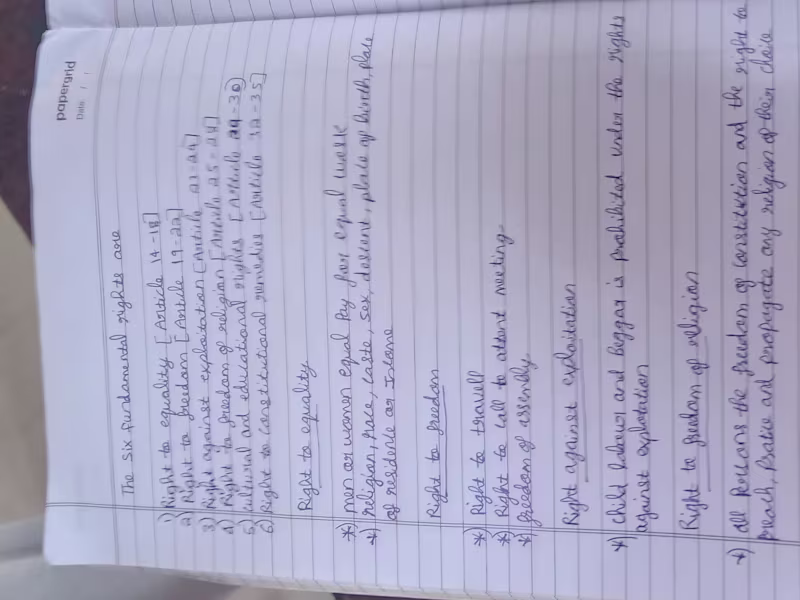 papergrid
Date: / /
The Six fundamental rights are
1) Right to equality [Article 14-18]
2) Right to freedom [Article 19-22]
3) Right against exploitation [Article 23-24]
4) Right to freedom of religion [Article 25-28]
5) cultural and educational rights [Article 29-30]
6) Right to constitutional remedies [Article 32-35]
Right to equality
*) men or women equal Pay for equal work
*) religion, race, caste, sex, descent, place of birth, place
of residence or Income
Right to freedom
*) Right to travell
*) Right to call to attent meeting
*) freedom of assembly
Right against exploitation
*) child labour and Beggar is prohibited under the rights
against exploitation
Right to freedom of religion
*) all persons the freedom of constitution and the right to
preach, and propagate any religion of their choice